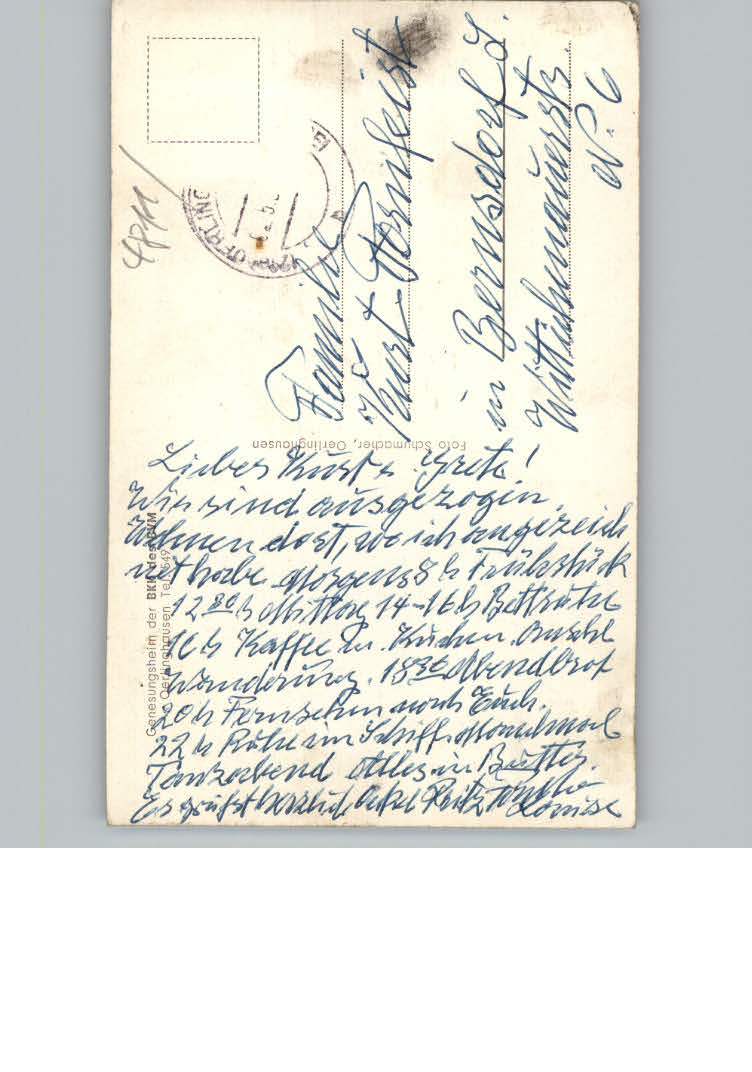 Familie
Kurt
in Bernsdorf
N. 6
Liebes Kurt u. Greta!
Wir sind ausgezogen,
Wohnen dort, wo ich angezeich
net habe. Morgens 8 h Frühstück
12 30 h Mittag 14-16 h Bettruhe
16 h Kaffee u. Kuchen. Anschl
Wanderung. 18 30 Abendbrot
20 h Fernsehen nach Euch.
22 h Ruhe im Schiff. Manchmal
Tanzabend Alles in Butter.
Es grüßt herzlich Onkel Fritz
Louise
Foto Schumacher, Oerlinghausen
Genesungsheim der BKK des
Oerlinghausen Tel.
OERLING